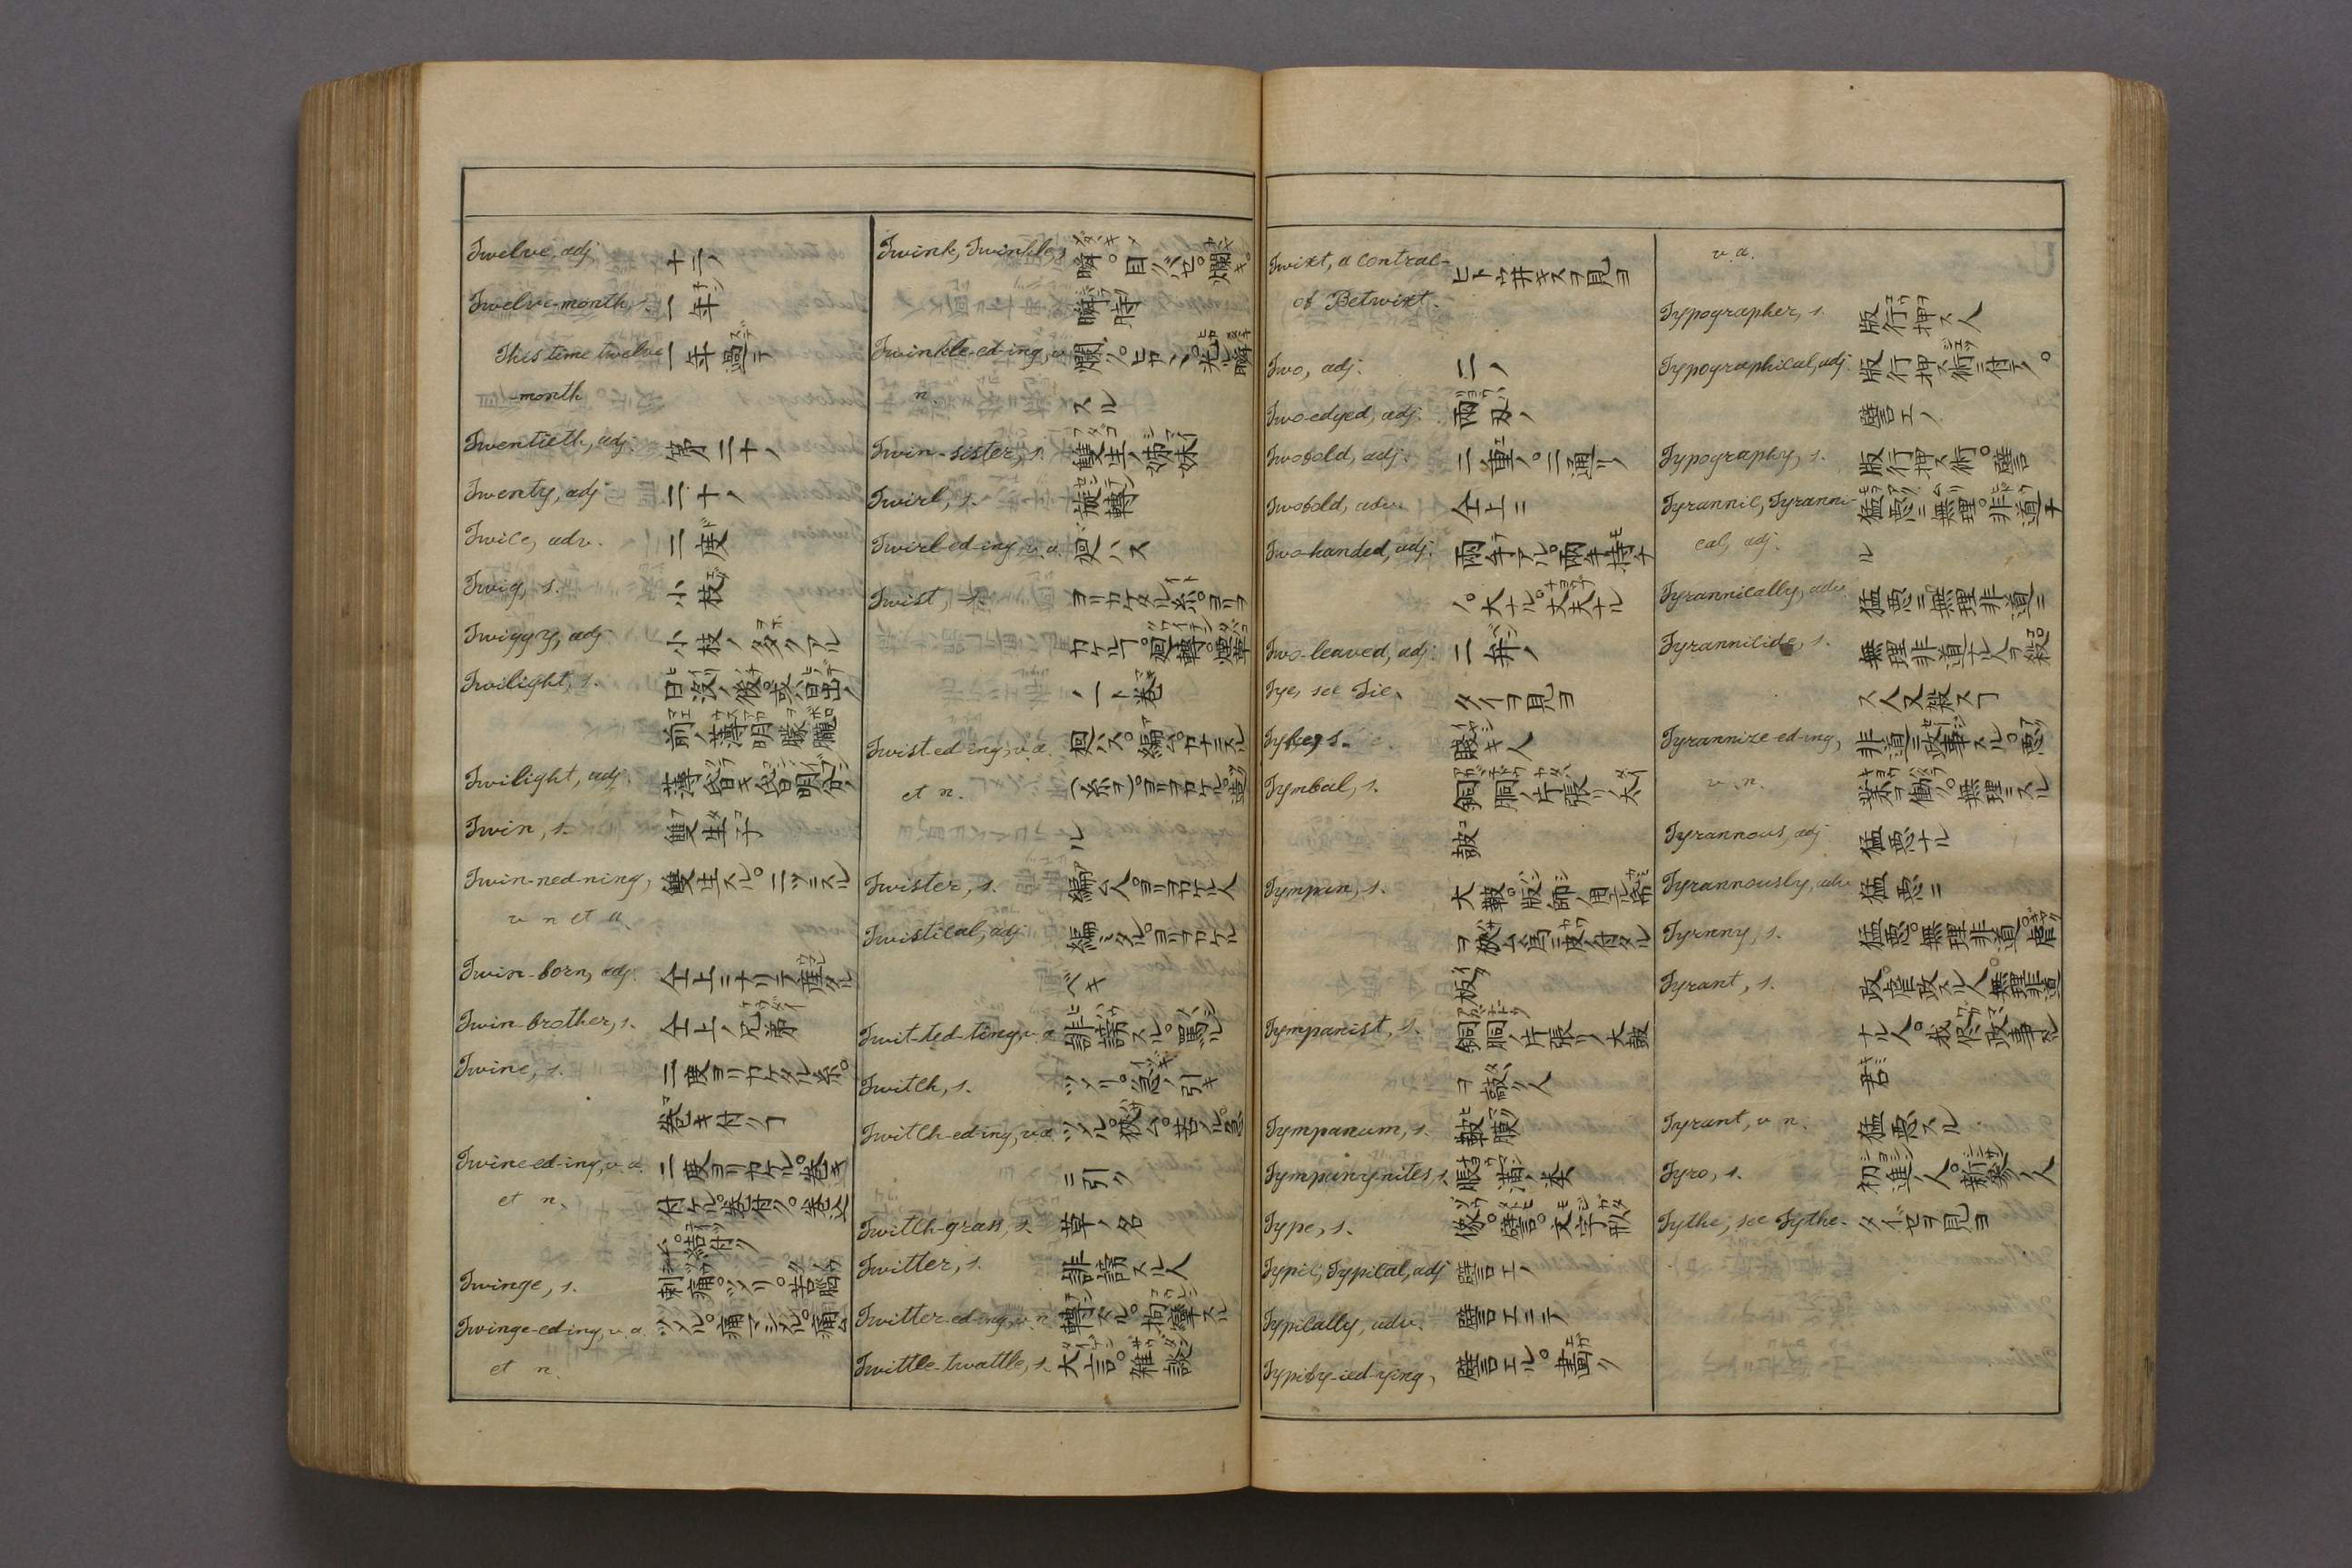 Twelve, adj. 十二ノ
Twelve-month, s. 一年
This time twelve 一年過テ
-month
Twentieth, adj. 第二十ノ
Twenty, adj. 二十ノ
Twice, adv. 二度
Twig, s. 小枝
Twiggy, adj. 小枝ノ多クアル
Twilight, s. 日没ノ後。或ハ日出ノ
前ノ薄明朦朧
Twilight, adj.
Twin, s. 雙生子
Twin-ned-ning, 雙生スル。二ツニスル
v. n. et a.
Twin-born, adj. 仝上ニナリテ産タル
Twin-brother, s. 仝上ノ兄弟
Twine, s. 二度ヨリカケタル糸。
巻キ付ク
Twine-ed-ing, v. a. 二度ヨリカケル。巻キ
et n. 付ケル。巻付ク。巻込
Twinge, s. 刺痛。ツメリ。苦悩
Twinge-ed-ing, v. a. ツメル。痛マシメル。痛ム
et n.
Twink, Twinkle, s. 瞬。目クバセ。爛キ。
瞬時
Twinkle-ed-ing, v. 爛ク。ヒカ
n. スル
Twin-sister, s. 雙生ノ姉妹
Twirl, s. 旋轉
Twirl-ed-ing, v. a. 廻ハス
Twist, s. ヨリカケタル糸。ヨリヲ
ノ一ト巻
Twist-ed-ing, v. a. 廻ハス。編ム。カナニスル
et n.
ル
Twister, s. 編ム人。ヨリヲカケル人
Twistical, adj. 編ミタル。ヨリヲカケル
ベキ
Twit-ted-ting, v. a. 誹謗スル。罵ル
Twitch, s. ツメリ。急ノ引キ
Twitch-ed-ing, v. a. ツメル。挾ム。苦メル。急
ニ引ク
Twitch-grass, s. 草ノ名
Twitter, s. 誹謗スル人
Twitter-ed-ing, v. n.
Twittle-twattle, s. 大言。雜談
Twixt, a contrac- ヒトウ井キスヲ見ヨ
of Betwixt.
Two, adj. 二ノ
Two-edged, adj. 兩刃ノ
Twofold, adj. 二重ノ。二通リ
Twofold, adv. 仝上ニ
Two-handed, adj. 兩手アル。兩手持チ
ノ。大ナル。丈夫ナル
Two-leaved, adj. 二弁ノ
Tye, see Tie. タイヲ見ヨ
Tyke, s. 賤キ人
Tymbal, s. 銅胴ノ片張リノ太
皷
Tympan, s. 大皷。版師ノ用ル
板
Tympanist, s. 銅胴ノ片張リノ大鼓
ヲ鼓ク人
Tympanum, s. 皷膜
Tympany-nites, s. 脹滿ノ类
Type, s. 像。譬言。文字形
Typic, Typical, adj. 譬言エノ
Typically, adv. 譬言エニテ
Typify-ied-ying, 譬言エル。畫ク
v. a.
Typographer, s. 版行押ス人
Typographical, adj. 版行押ス術ニ付テノ。
譬言エノ
Typography, s. 版行押ス術。譬言
Tyrannic, Tyranni- 猛惡ニ無理。非道ナ
cal, adj. ル
Tyrannically, adv. 猛惡ニ無理非道ニ
Tyrannicide, s. 無理非道ナル人ヲ殺
ス人又殺スヿ
Tyrannize-ed-ing, 非道ニ政事スル。惡
v. n. 業ヲ働ク。無理ニスル
Tyrannous, adj. 猛惡ナル
Tyrannously, adv. 猛惡ニ
Tyranny, s. 猛惡。無理非道。虐
Tyrant, s. 政。虐政スル人。無理非道
ナル人。我侭政事スル
君
Tyrant, v. n. 猛惡スル
Tyro, s. 初進ノ人。新參ノ人
Tythe, see Tythe. タイゼヲ見ヨ